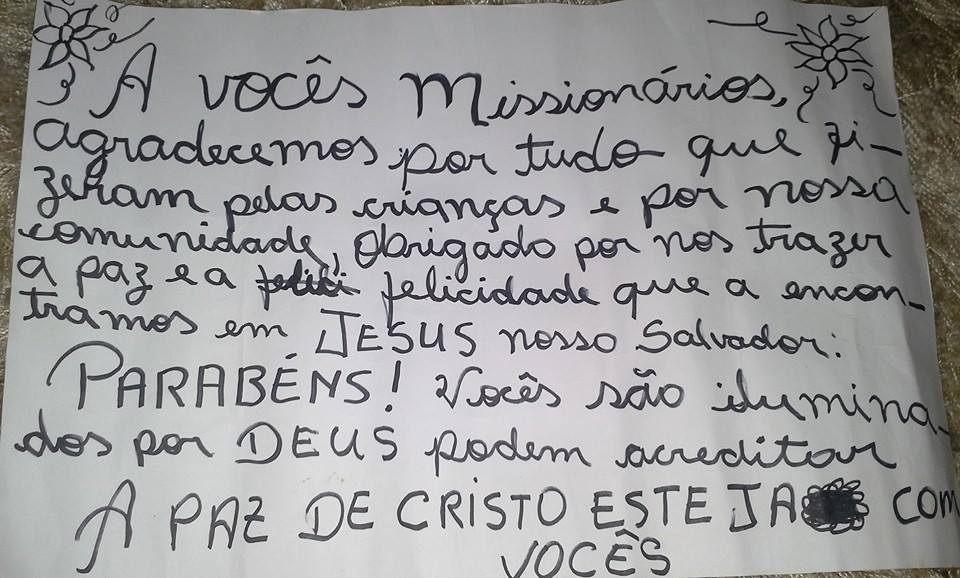 A vocês Missionários,
agradecemos por tudo que fi-
zeram pelas crianças e por nossa
comunidade, Obrigado por nos trazer
a paz e a felici felicidade que a encon-
tramos em JESUS nosso Salvador:
PARABÉNS! Vocês são ilumina-
dos por DEUS podem acreditar
A PAZ DE CRISTO ESTEJA COM
VOCÊS